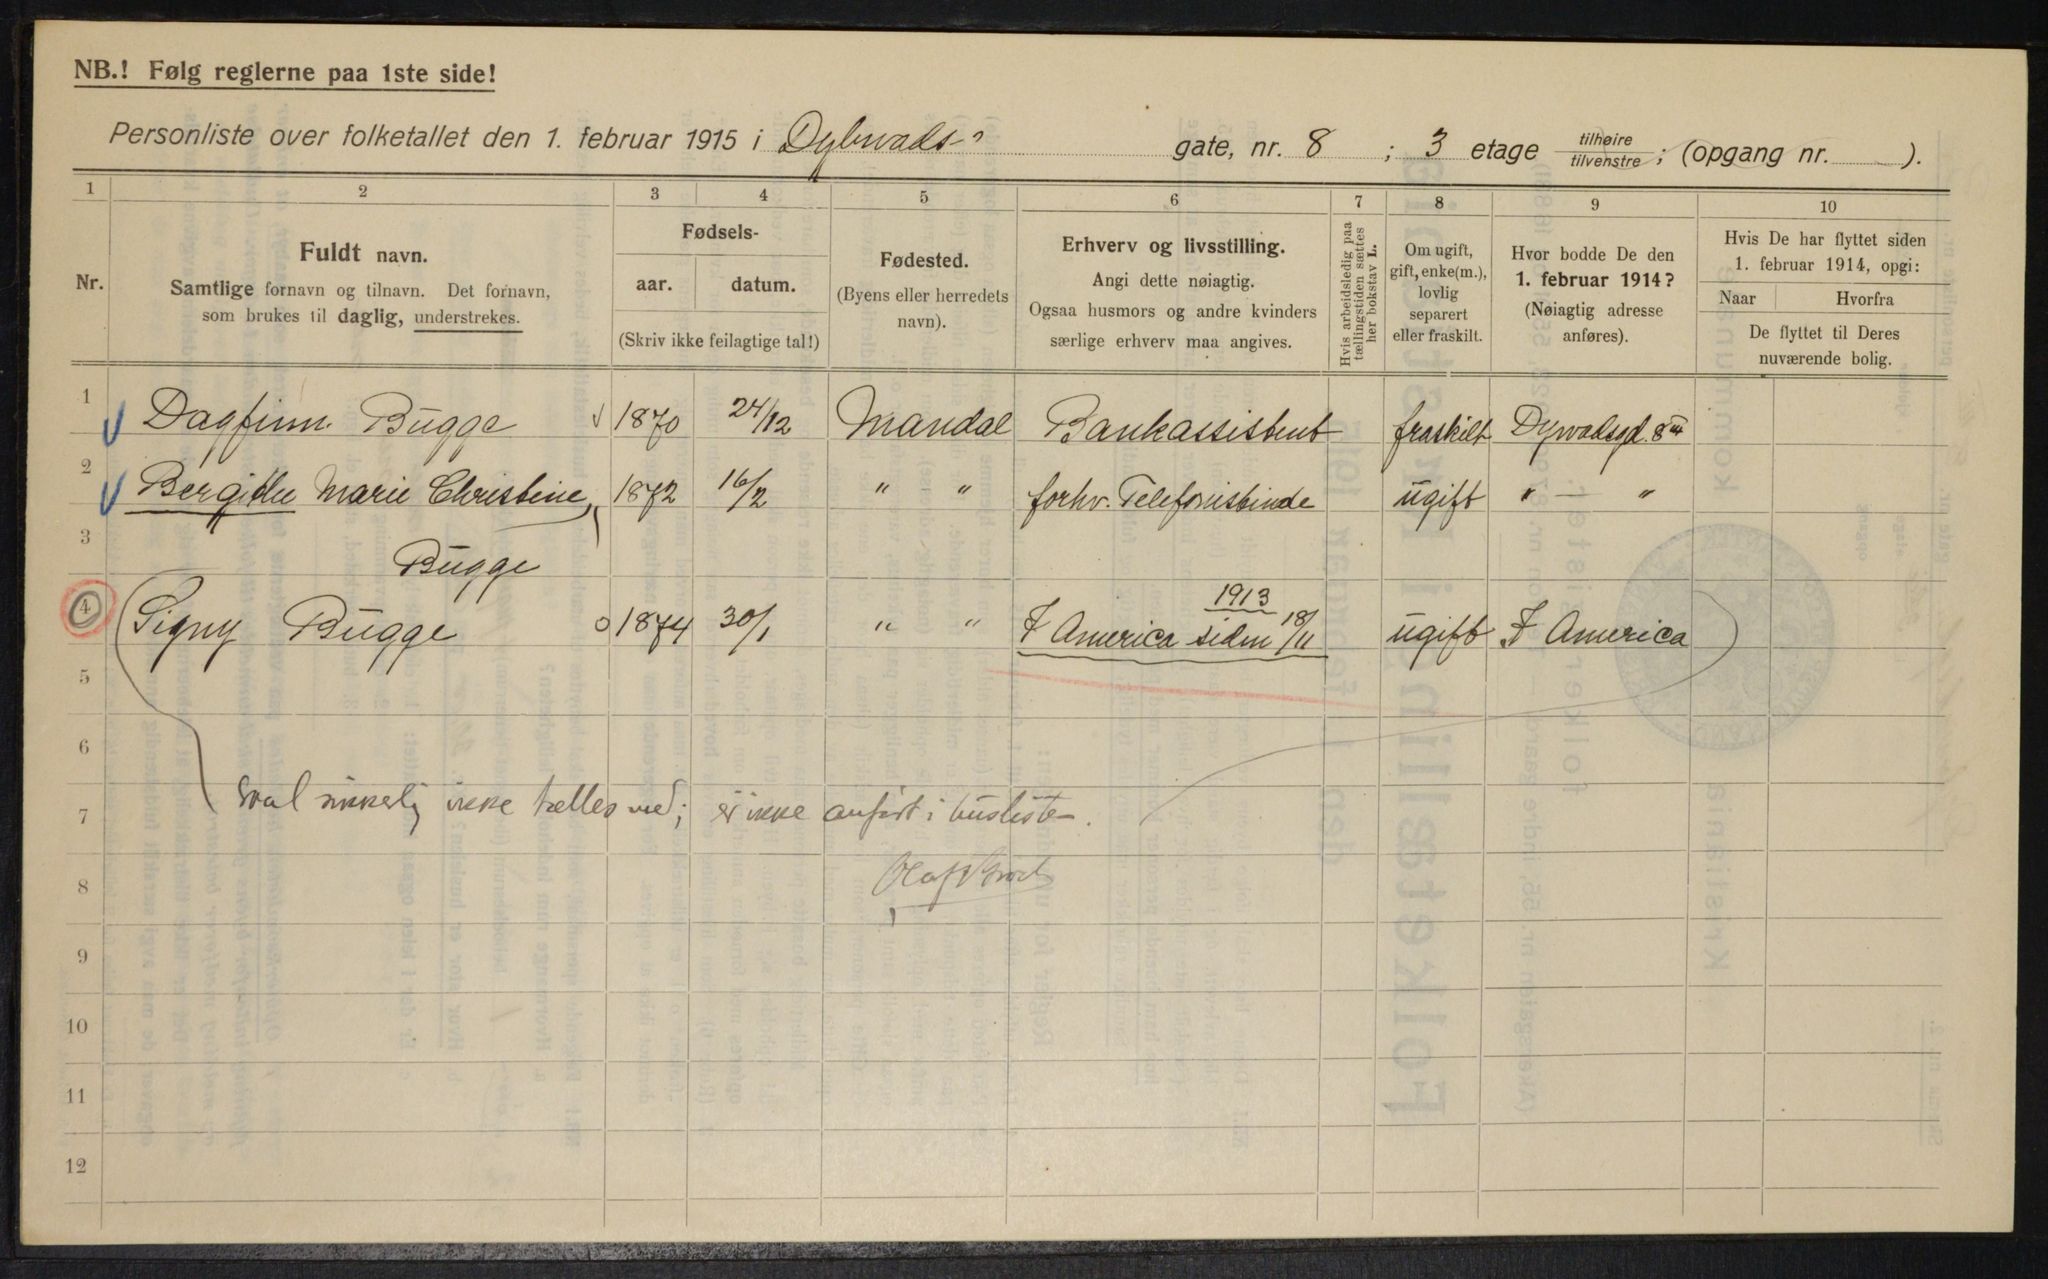 NB.! Følg reglerne paa 1ste side!
Personliste over folketallet den 1. februar 1915 i Dybwads- gate, nr. 8 ; 3 etage tilhøire tilvenstre ; (opgang nr. ).
1 2 3 4 5 6 7 8 9 10
Nr.
Fuldt navn.
Samtlige fornavn og tilnavn. Det fornavn,
som brukes til daglig, understrekes.
Fødsels-
aar. datum.
(Skriv ikke feilagtige tal!)
Fødested.
(Byens eller herredets
navn).
Erhverv og livsstilling.
Angi dette nøiagtig.
Ogsaa husmors og andre kvinders
særlige erhverv maa angives.
Hvis arbeidsledig paa
tællingstiden sættes
her bokstav L.
Om ugift,
gift, enke(m.),
lovlig
separert
eller fraskilt.
Hvor bodde De den
1. februar 1914?
(Nøiagtig adresse
anføres).
Hvis De har flyttet siden
1. februar 1914, opgi:
Naar Hvorfra
De flyttet til Deres
nuværende bolig.
1 Dagfinn Bugge 1870 24/12 Mandal Bankassistent fraskilt Dywadsgd. 8 III
2 Bergithe Marie Christine 1872 16/2 " " forhv. Telefonistinde ugift " — "
3 Bugge
1913
4 Signy Bugge 1874 30/1 " " I America siden 18/11 ugift I America
5
6
7 skal sikkerlig ikke tælles med; er ikke anført i huslisten.
8 Olaf
9
10
11
12